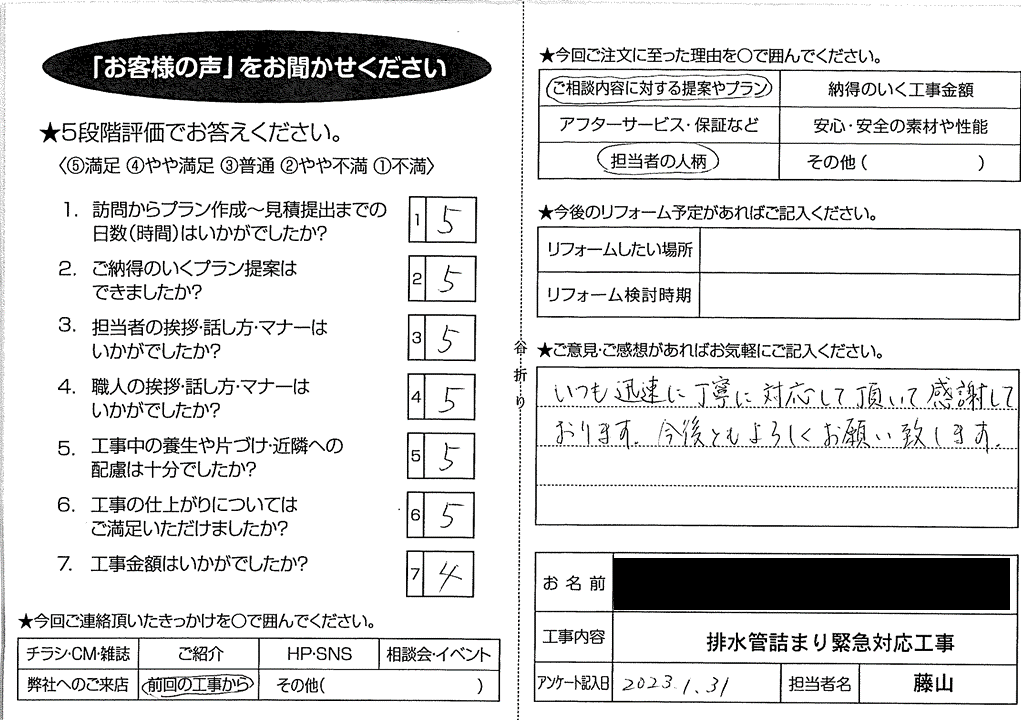 「お客様の声」をお聞かせください
★5段階評価でお答えください。
〈⑤満足 ④やや満足 ③普通 ②やや不満 ①不満〉
1. 訪問からプラン作成～見積提出までの
日数(時間)はいかがでしたか?
1 5
2. ご納得のいくプラン提案は
できましたか?
2 5
3. 担当者の挨拶・話し方・マナーは
いかがでしたか?
3 5
4. 職人の挨拶・話し方・マナーは
いかがでしたか?
4 5
5. 工事中の養生や片づけ・近隣への
配慮は十分でしたか?
5 5
6. 工事の仕上がりについては
ご満足いただけましたか?
6 5
7. 工事金額はいかがでしたか?
7 4
★今回ご連絡頂いたきっかけを○で囲んでください。
チラシ・CM・雑誌 ご紹介 HP・SNS 相談会・イベント
弊社へのご来店 前回の工事から その他( )
谷折り
★今回ご注文に至った理由を○で囲んでください。
ご相談内容に対する提案やプラン 納得のいく工事金額
アフターサービス・保証など 安心・安全の素材や性能
担当者の人柄 その他( )
★今後のリフォーム予定があればご記入ください。
リフォームしたい場所
リフォーム検討時期
★ご意見・ご感想があればお気軽にご記入ください。
いつも迅速に丁寧に対応して頂いて感謝して
おります。今後ともよろしくお願い致します。
お名前
工事内容 排水管詰まり緊急対応工事
アンケート記入日 2023.1.31 担当者名 藤山